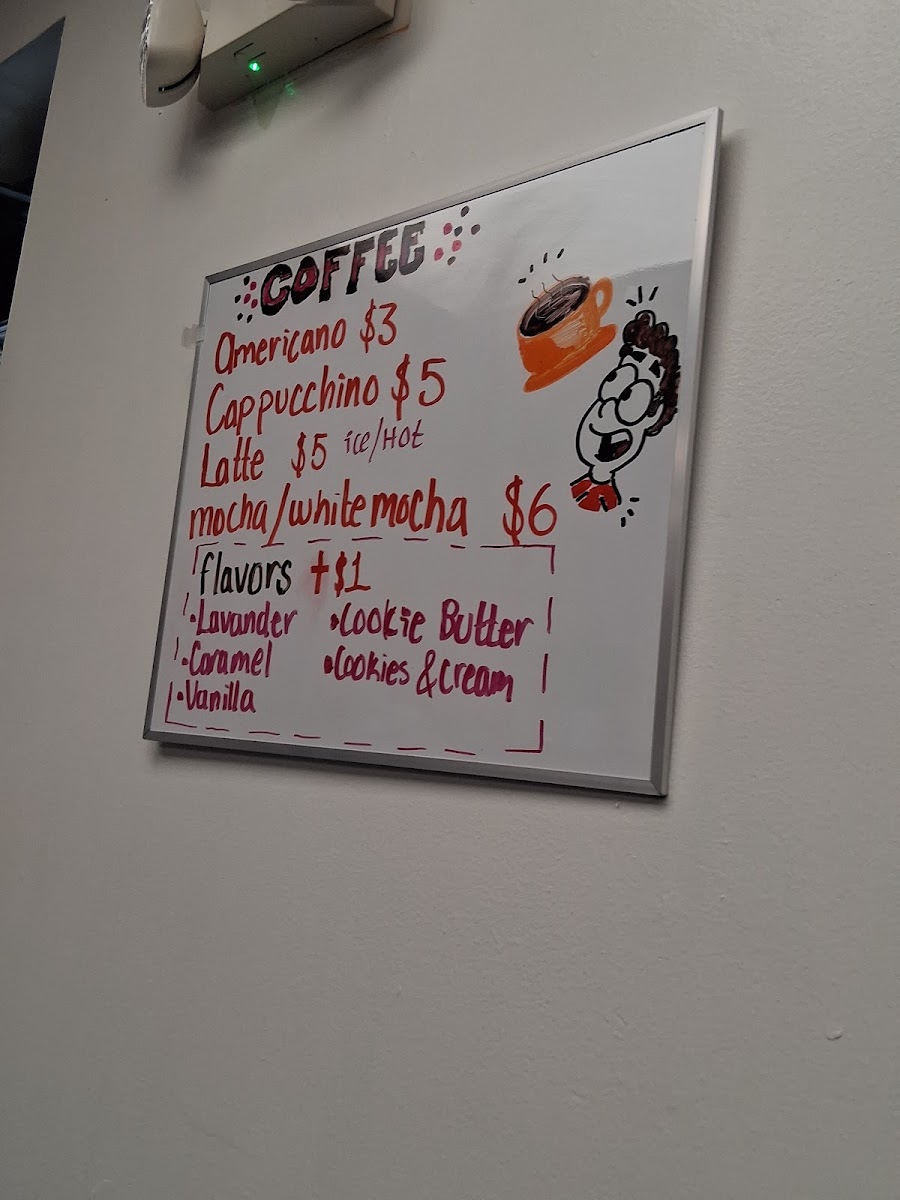 COFFEE
Americano $3
Cappucchino $5
Latte $5 ice/Hot
mocha/white mocha $6
flavors +$1
•Lavander •Cookie Butter
•Caramel •Cookies & Cream
•Vanilla